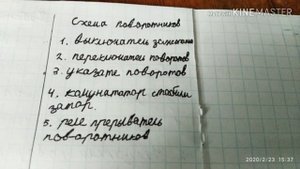 KINEMASTER
Схема поворотников
1. выключатель зажигания
2. переключатель поворотов
3. указате поворотов
4. комунататор стабили
затор.
5. реле прерыватель
поворотников
2020/2/23 15:37